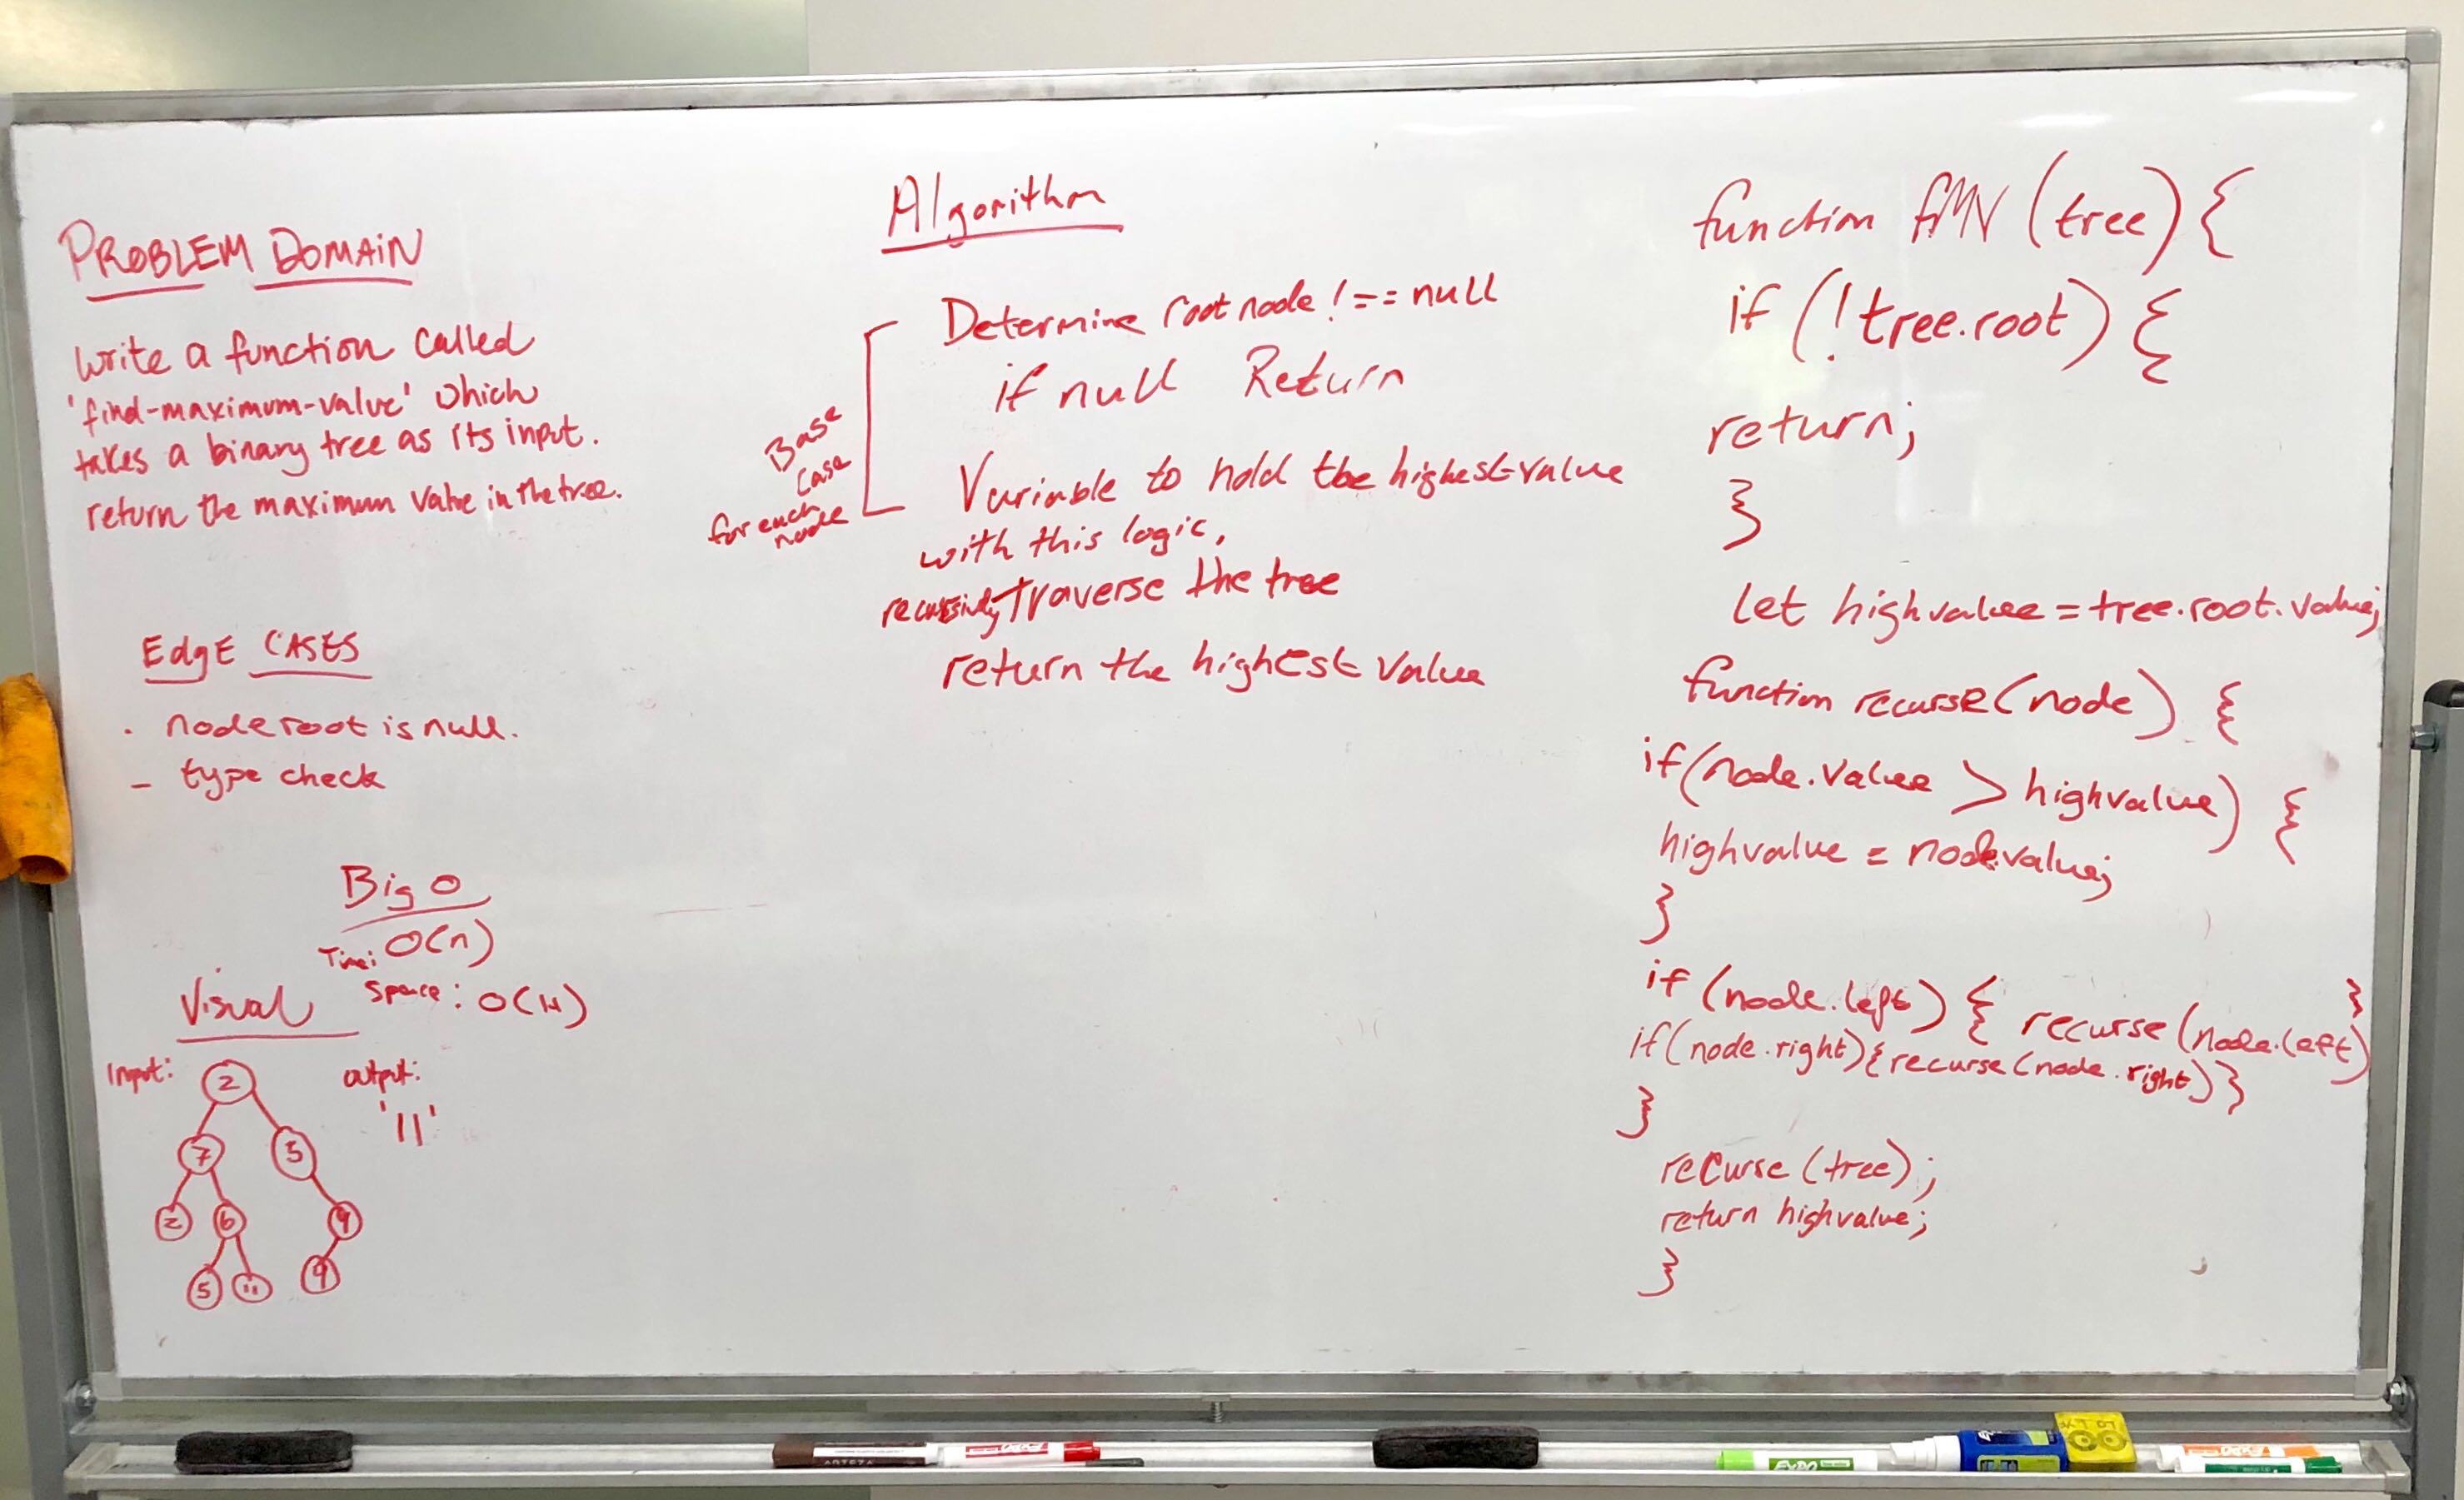 PROBLEM DOMAIN
write a function called
'find-maximum-value' which
takes a binary tree as its input.
return the maximum value in the tree.
Edge CASES
. node root is null.
- type check
Big O
Time: O(n)
Space: O(H)
Visual
Input:
output:
2
'11'
7
5
2
6
9
5
11
9
Algorithm
Determine root node !== null
if null Return
Base
case
for each
node
Variable to hold the highest value
with this logic,
recursively Traverse the tree
return the highest value
function fMV (tree) {
if (!tree.root) {
return;
}
let highvalue = tree.root.value;
function recurse(node) {
if(node.value > highvalue) {
highvalue = node.value;
}
if (node.left) { recurse(node.left) }
if(node.right){recurse(node.right)}
}
recurse (tree);
return highvalue;
}
ARTEZA
EXPO
EXPO